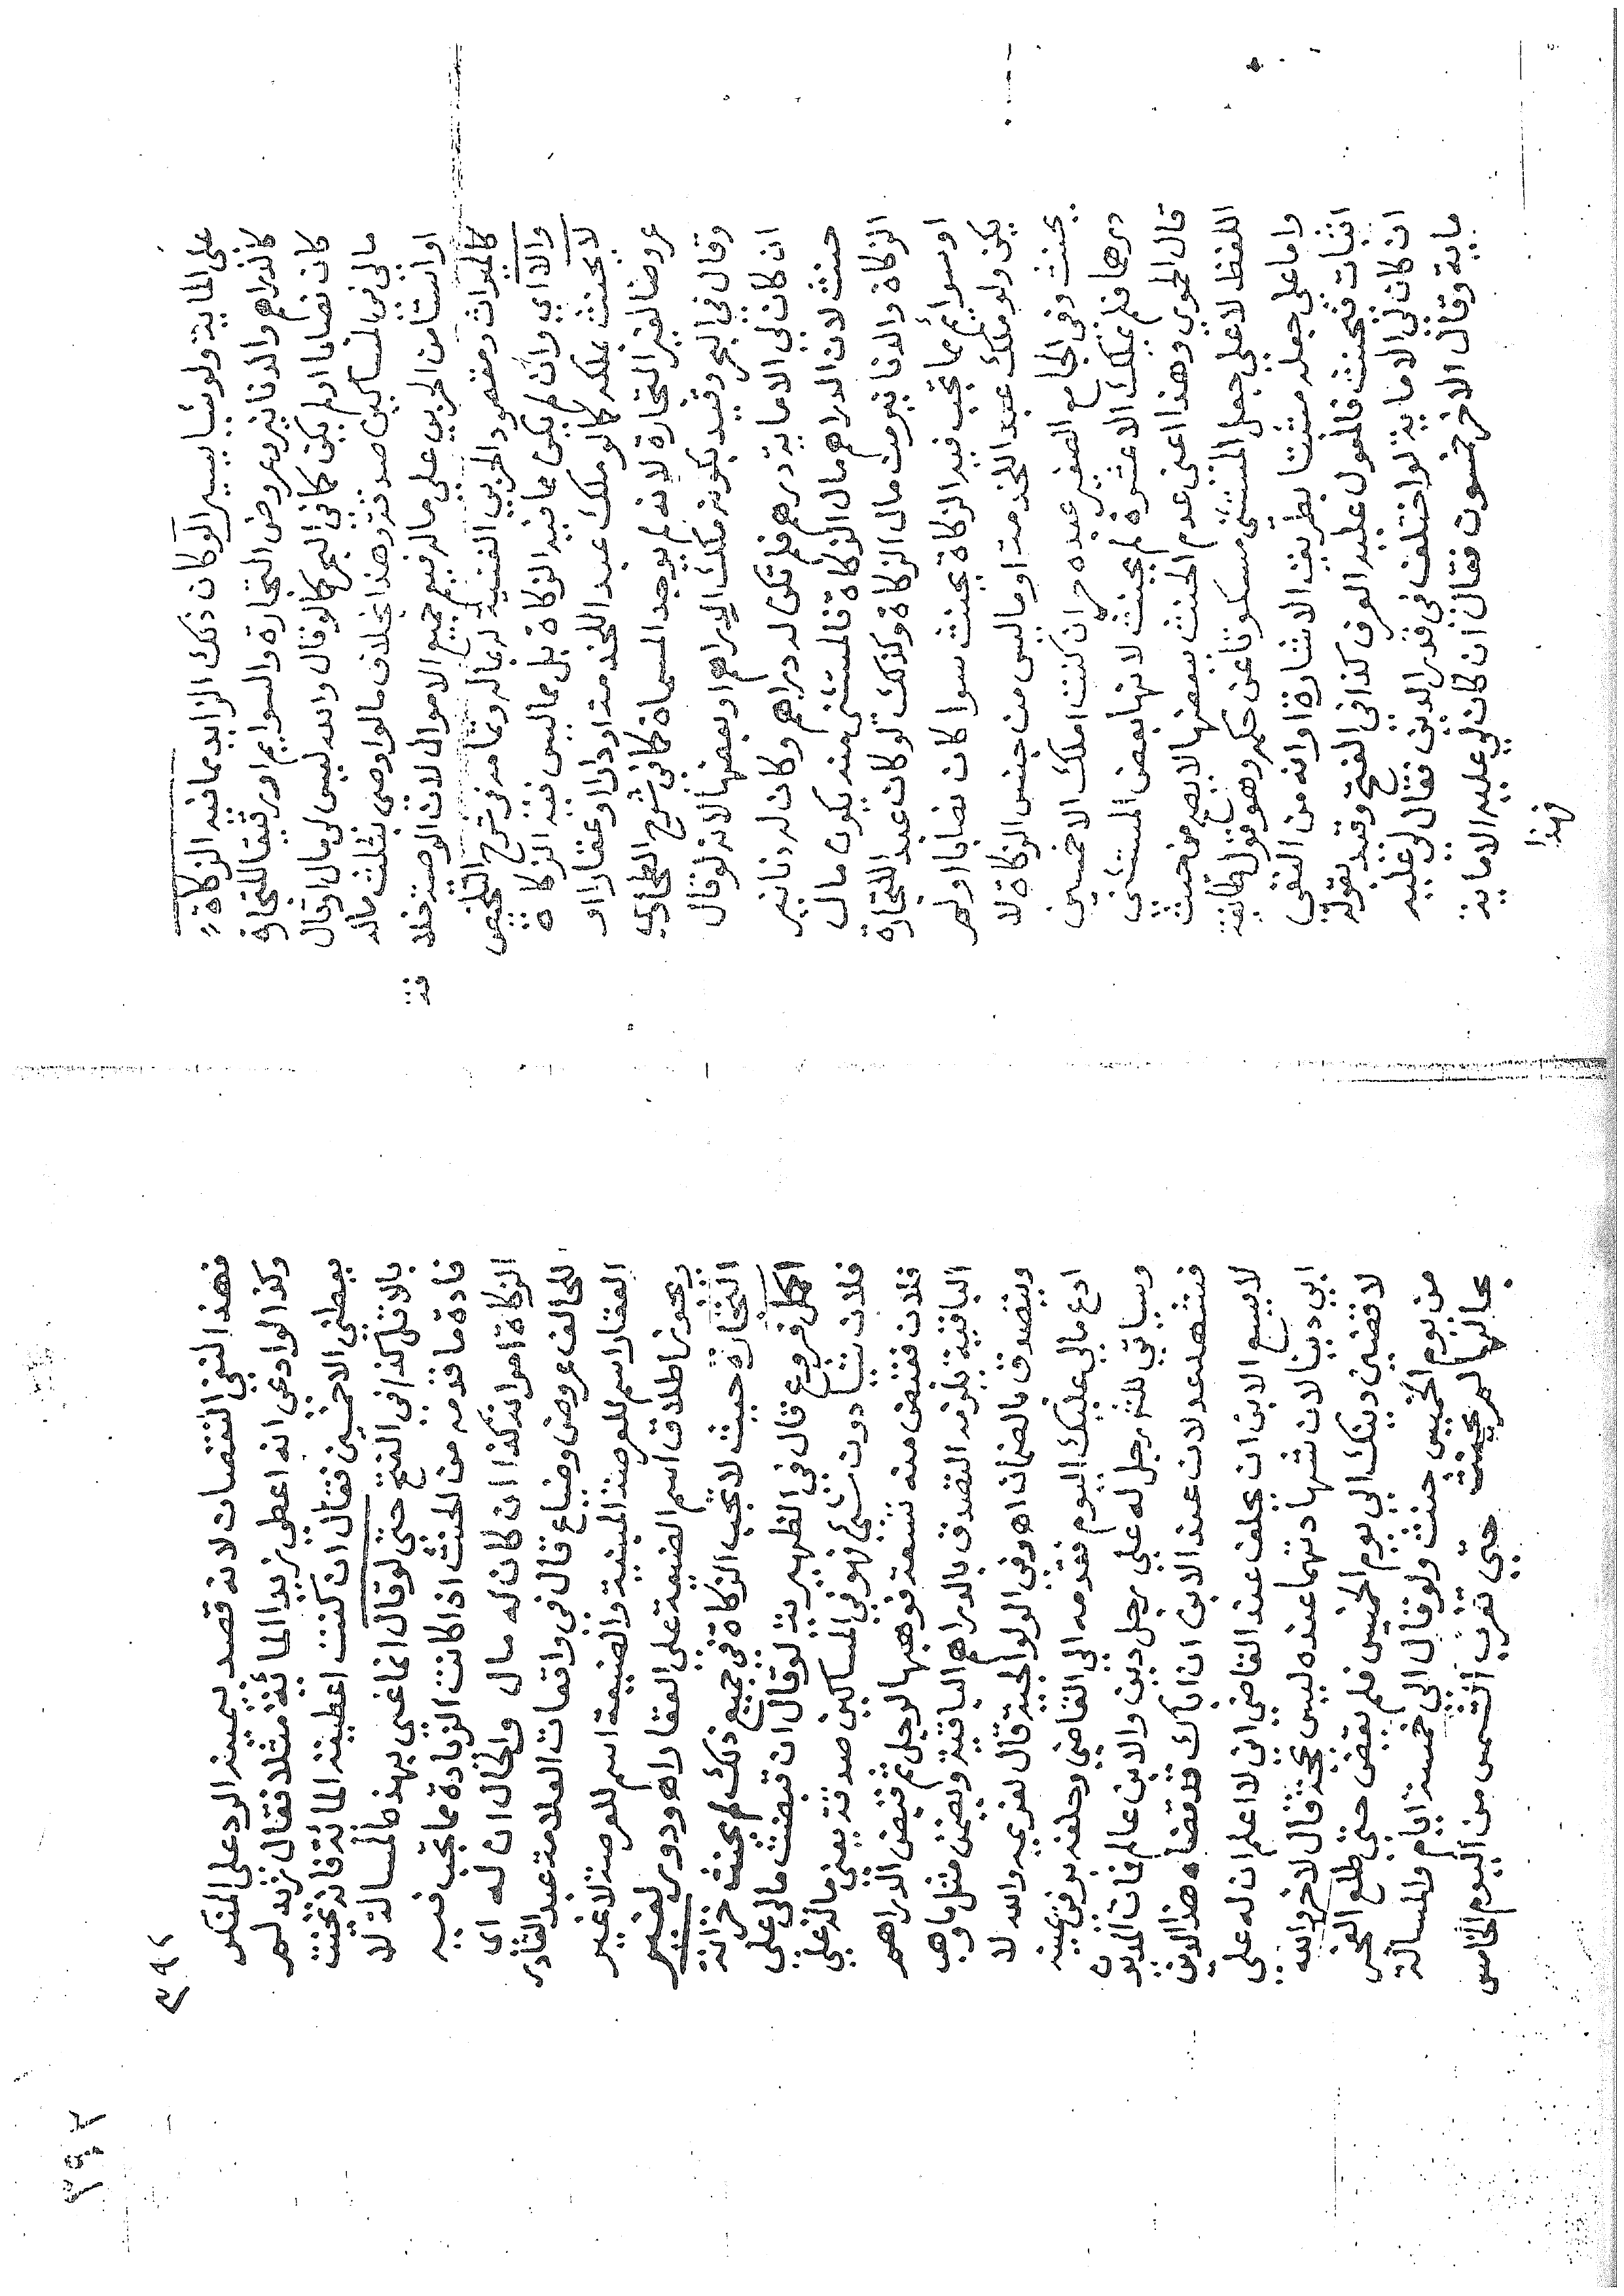 على الماية ولو شيا يسيرا لو كان ذلك الزايد مما فيه الزكاة
كالدراهم والدنانير وعروض التجارة والسوايم او رقيقا للتجارة
كان نصابا او لم يكن كما في البحر كما لو قال والله ليس لي مال او قال
مالي في المساكين صدقة وهذا بخلاف ما لو اوصى بثلث ماله
او استامن الحربي على ماله فيعم جميع الاموال لان الوصية خلافة
كالميراث ومقصود الحربي الغنية له بماله وتمامه في شرح التلخيص
والا اي وان لم يكن مما فيه الزكاة بل مما ليس فيه الزكاة
لا يحنث بملكه كما لو ملك عبد اللخدمة او دارا او عقارا او
عروضا لغير التجارة لانه لم يوجد المسماة كما في شرح الطحاوي
وقال في البحر وقيد بكونه ملك الدراهم او بعضها لانه لو قال
ان كان لي الا ماية درهم فلم تكن له دراهم وكان له دنانير
حنث لان الدراهم مال الزكاة فالمستثنى منه يكون مال
الزكاة والدنانير من مال الزكاة وكذلك لو كان عبد اللتجارة
او سوايم مما تجب فيه الزكاة يحنث سوا كان نصابا او لم
يكن ولو ملك عبد اللخدمة او ما ليس من جنس الزكاة لا
يحنث وفي الجامع الصغير عبده حر ان كنت املك الا خمسين
درهما فلم يملك الا عشرة لم يحنث لانها بعض المستثنى
قال الحموي وهذا اعنى عدم الحنث ببعضها لا يصح من حيث
اللفظ لا على جعل المستثنى مسكوتا عن حكمه وهو قول طائفة
واما على جعله مثبتا بطريق الاشارة او انه من النفي
اثبات فيحنث فالمعول عليه العرف كذا في الفتح وقيد بقوله
ان كان لي الا ماية لو اختلف في قدر الدين فقال لي عليه
ماية وقال الاخر خمسون فقال ان كان لي عليه الا ماية
فهذا
٢٩٤
فهذا لنفي النقصان لانه قصد بيمينه الرد على المنكر
وكذا لو ادعى انه اعطى زيدا المائة مثلا فقال زيد لم
يعطني الا خمسين فقال ان كنت اعطيته الا مائة فانه يحنث
بالاقل كذا في الفتح حتى لو قال انما اعني بهذه المسالة لا
فادة ما قدمه من الحنث اذا كانت الزيادة مما تجب فيه
الزكاة امواله كذا ان كان له مال والحال ان له اي
للحالف عروض وضياع قال في واقعات العلامة عبد القادر
العقار اسم للعرصة المبنية والضيعة اسم للعرصة لا غير
ويجوز اطلاق اسم الضيعة على العقار اه ودور لغير
التجارة حيث لا تجب الزكاة في جميع ذلك لم يحنث خزانة
اكمل فروع قال في الظهيرية لو قال ان قبضت مالي على
فلان شيا دون شئ فهو في المساكين صدقة يعني ماله على
فلان فقبض منه تسعة فوهبها لرجل ثم قبض الدراهم
الباقية يلزمه التصدق بالدراهم الباقية ويضمن مثل ما وهب
ويتصدق بالضمان اه وفي الولوالجية قال لغريمه والله لا
ادع مالي عليك اليوم فقدمه الى القاضي وحلفه بر في يمينه
وسياتي للشر رجل له على رجل دين والابن عالم فمات المديون
فشهد عدلان عند الابن ان اباك قد قضاه هذا الدين
لا يسع الابن ان يحلف عند القاضي اني لا اعلم ان له على
ابي دينا لان شهادتهما عنده ليس بحجة قال لاخر والله
لا قضين دينك الى يوم الخميس فلم يقض حتى طلع الفجر
من يوم الخميس حنث ولو قال الى خمسة ايام والمسالة
بحالها لم يحنث حتى تغرب الشمس من اليوم الخامس